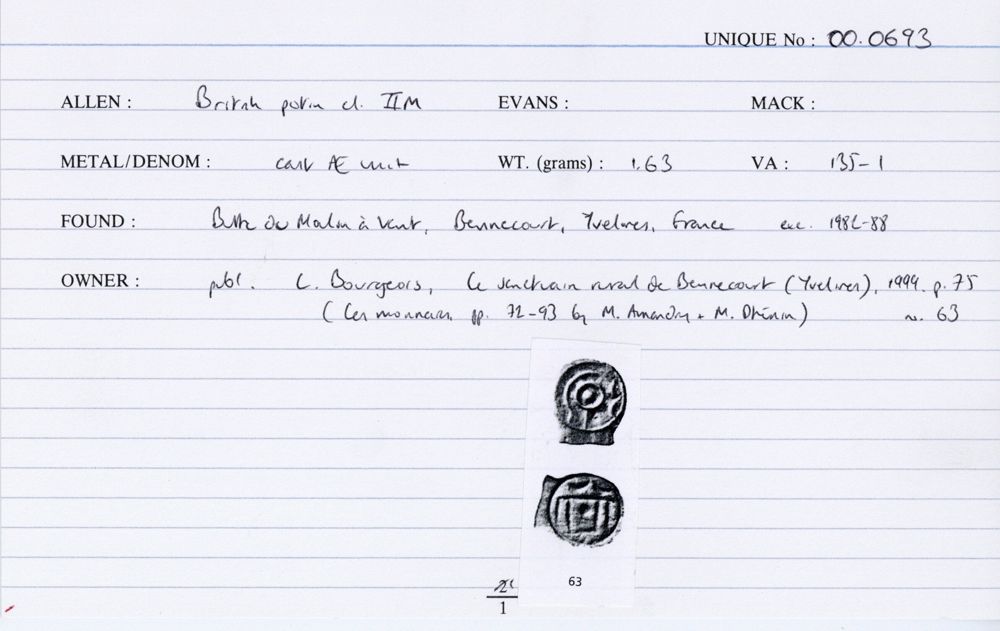 UNIQUE No : 00.0693
ALLEN : British potin cl. IIM EVANS : MACK :
METAL/DENOM : cast Æ unit WT. (grams) : 1.63 VA : 135-1
FOUND : Butte du Moulin à Vent, Bennecourt, Yvelines, France exc. 1982-88
OWNER : publ. L. Bourgeois, Le sanctuaire rural de Bennecourt (Yvelines), 1999. p. 75
(Les monnaies, pp. 72-93 by M. Amandry + M. Dhénin) no. 63
63
2
1